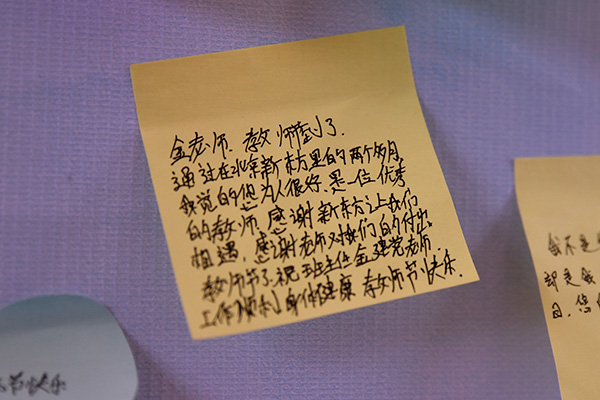 金老师. 教师节到了.
通过在北京新东方里的两个多月,
我觉的您为人很好.是一位优秀
的教师.感谢新东方让我们
相遇,感谢老师对我们的付出.
教师节了.祝班主任金建党老师.
工作顺利 身体健康 教师节快乐.
我不是
却是我
日,您
节快乐